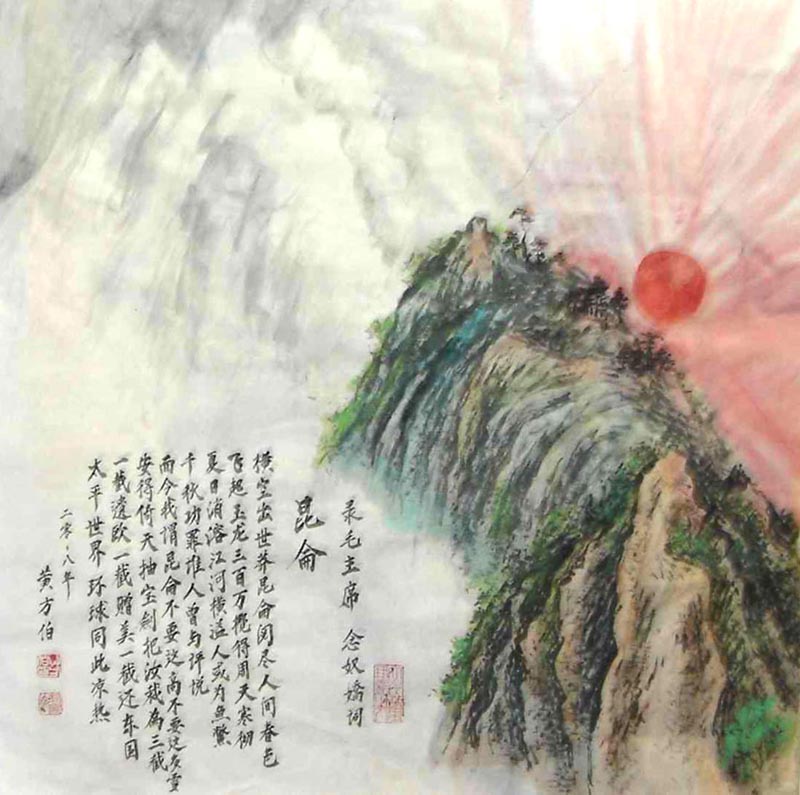 录毛主席 念奴娇词
昆仑
横空出世莽昆仑阅尽人间春色
飞起玉龙三百万搅得周天寒彻
夏日消溶江河横溢人或为鱼鳖
千秋功罪谁人曾与评说
而今我谓昆仑不要这高不要这多雪
安得倚天抽宝剑把汝裁为三截
一截遗欧一截赠美一截还东国
太平世界环球同此凉热
二零一八年
黄方伯